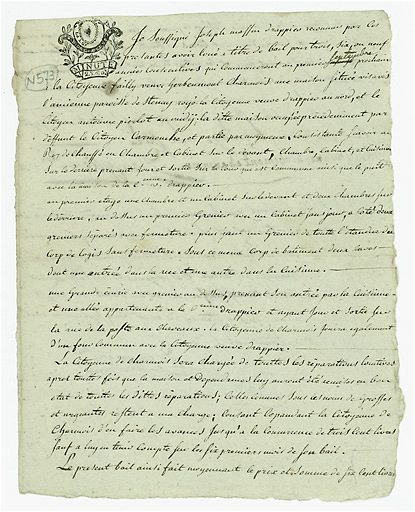 Je Soussigné Joseph massin drappier reconnait par ces
présentes avoir loué à titre de bail pour trois, Six, ou neuf
années Consécutives qui Commenceront au premier prochain
N573
à la Citoyenne failly veuve Charmois une maison sitûée visavis
l'ancienne de Stenay joyo la Citoyenne veuve drappier au nord, et le
Citoyen antoine pierlot au midÿ; la ditte maison précédemment par
deffunt le Citoyen et partie par moy même; Consistante savoir au
Rez de chaussé en Chambre et Cabinet Sur le devant, Chambre, Cabinet, et Cuisine
Sur le derrière prenant jour et sortie Sur la Cour qui est Commune ainsi que le puit
avec la maison de la drappier.
au premier étage une Chambre et un Cabinet sur le devant et deux chambres sur
le derrière, au dessus un premier Grenier avec un Cabinet sans jour, à côté deux
greniers séparés avec fermeture. plus haut un Grenier de toute l'étendüe du
Corp de logis Sans fermeture. Sous ce même Corp de bâtiment deux Caves
dont une entrée dans la rue et une autre dans la Cuisine.
une Grande écurie avec grenier au dessus, prenant son entrée par la Cuisine
et une allée appartenante à la drappier et ayant Jour et Sortie Sur
la rue de la poste aux Chevaux. la Citoyenne de Charmois jouira également
d'un four Commun avec la Citoyenne veuve drappier.
La Citoyenne de Charmois Sera Chargée de touttes les réparations locatives
après toute fois que la maison et dépendences luy auront été remises en bon
état de touttes les dittes réparations; Celles Connues Sous les noms de grosses
et urgentes restent à ma Charge; Consent Cependant la Citoyenne de
Charmois d'en faire les avances Jusqu'à la Concurrence de trois Cent livres
Sauf à luy en tenir Compte Sur les six premiers mois de son bail.
Le présent bail ainsi fait moyennant le prix et Somme de Six Cent livres